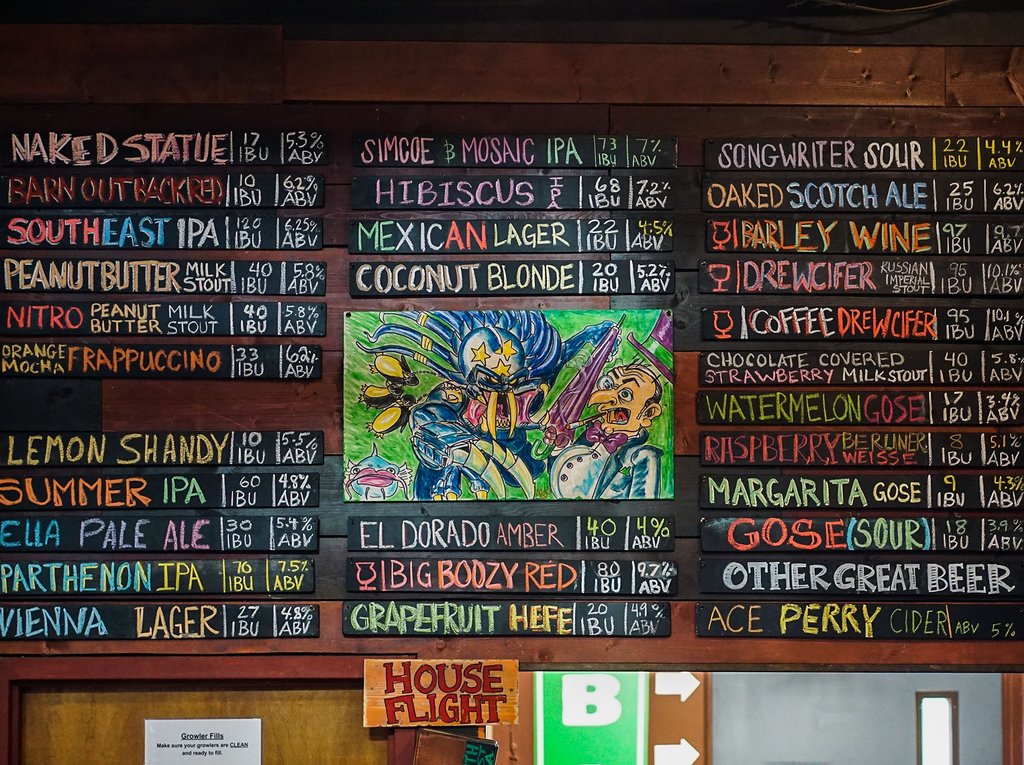 NAKED STATUE 17 IBU 5.3% ABV
BARN OUTBACK RED 10 IBU 6.2% ABV
SOUTHEAST IPA 120 IBU 6.25% ABV
PEANUT BUTTER MILK STOUT 40 IBU 5.8% ABV
NITRO PEANUT BUTTER MILK STOUT 40 IBU 5.8% ABV
ORANGE MOCHA FRAPPUCCINO 33 IBU 6.2% ABV
LEMON SHANDY 10 IBU 5.5% ABV
SUMMER IPA 60 IBU 4.8% ABV
ELLA PALE ALE 30 IBU 5.4% ABV
PARTHENON IPA 70 IBU 7.5% ABV
VIENNA LAGER 27 IBU 4.8% ABV
SIMCOE & MOSAIC IPA 73 IBU 7% ABV
HIBISCUS IPA 68 IBU 7.2% ABV
MEXICAN LAGER 22 IBU 4.5% ABV
COCONUT BLONDE 20 IBU 5.2% ABV
EL DORADO AMBER 40 IBU 4% ABV
BIG BOOZY RED 80 IBU 9.7% ABV
GRAPEFRUIT HEFE 20 IBU 4.9% ABV
SONGWRITER SOUR 22 IBU 4.4% ABV
OAKED SCOTCH ALE 25 IBU 6.2% ABV
BARLEY WINE 97 IBU 9.7 ABV
DREWCIFER RUSSIAN IMPERIAL STOUT 95 IBU 10.1% ABV
COFFEE DREWCIFER 95 IBU 10.1 ABV
CHOCOLATE COVERED STRAWBERRY MILK STOUT 40 IBU 5.8% ABV
WATERMELON GOSE 17 IBU 3.4% ABV
RASPBERRY BERLINER WEISSE 8 IBU 5.1% ABV
MARGARITA GOSE 9 IBU 4.3% ABV
GOSE (SOUR) 18 IBU 3.9% ABV
OTHER GREAT BEER
ACE PERRY CIDER ABV 5%
HOUSE
FLIGHT
B
Growler Fills
Make sure your growlers are CLEAN
and ready to fill.